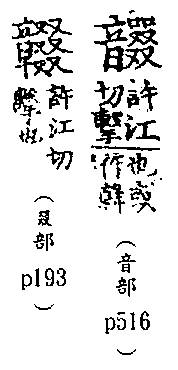 許江
切擊
也或
作
（音部）
p516
許江切
擊也
（叕部）
p193